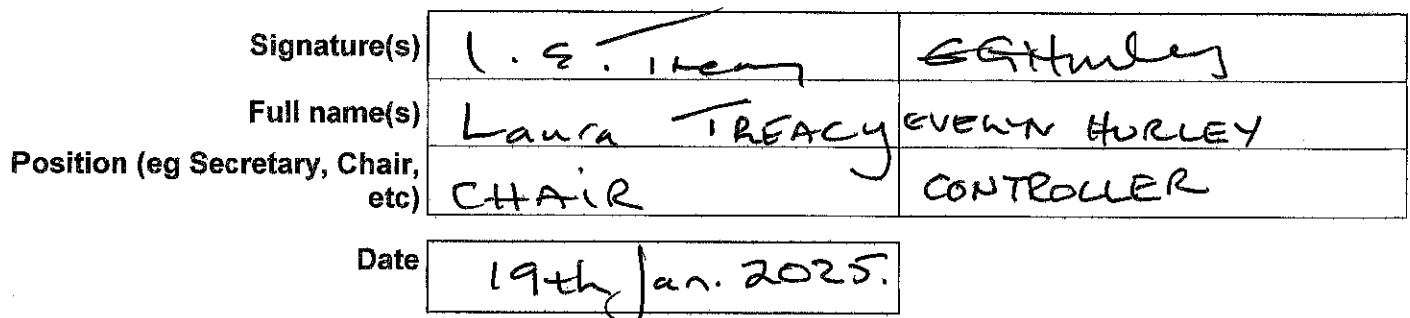 Signature(s) L. E. Treacy EGHurley
Full name(s) Laura TREACY EVELYN HURLEY
Position (eg Secretary, Chair,
etc) CHAIR CONTROLLER
Date 19th Jan. 2025.